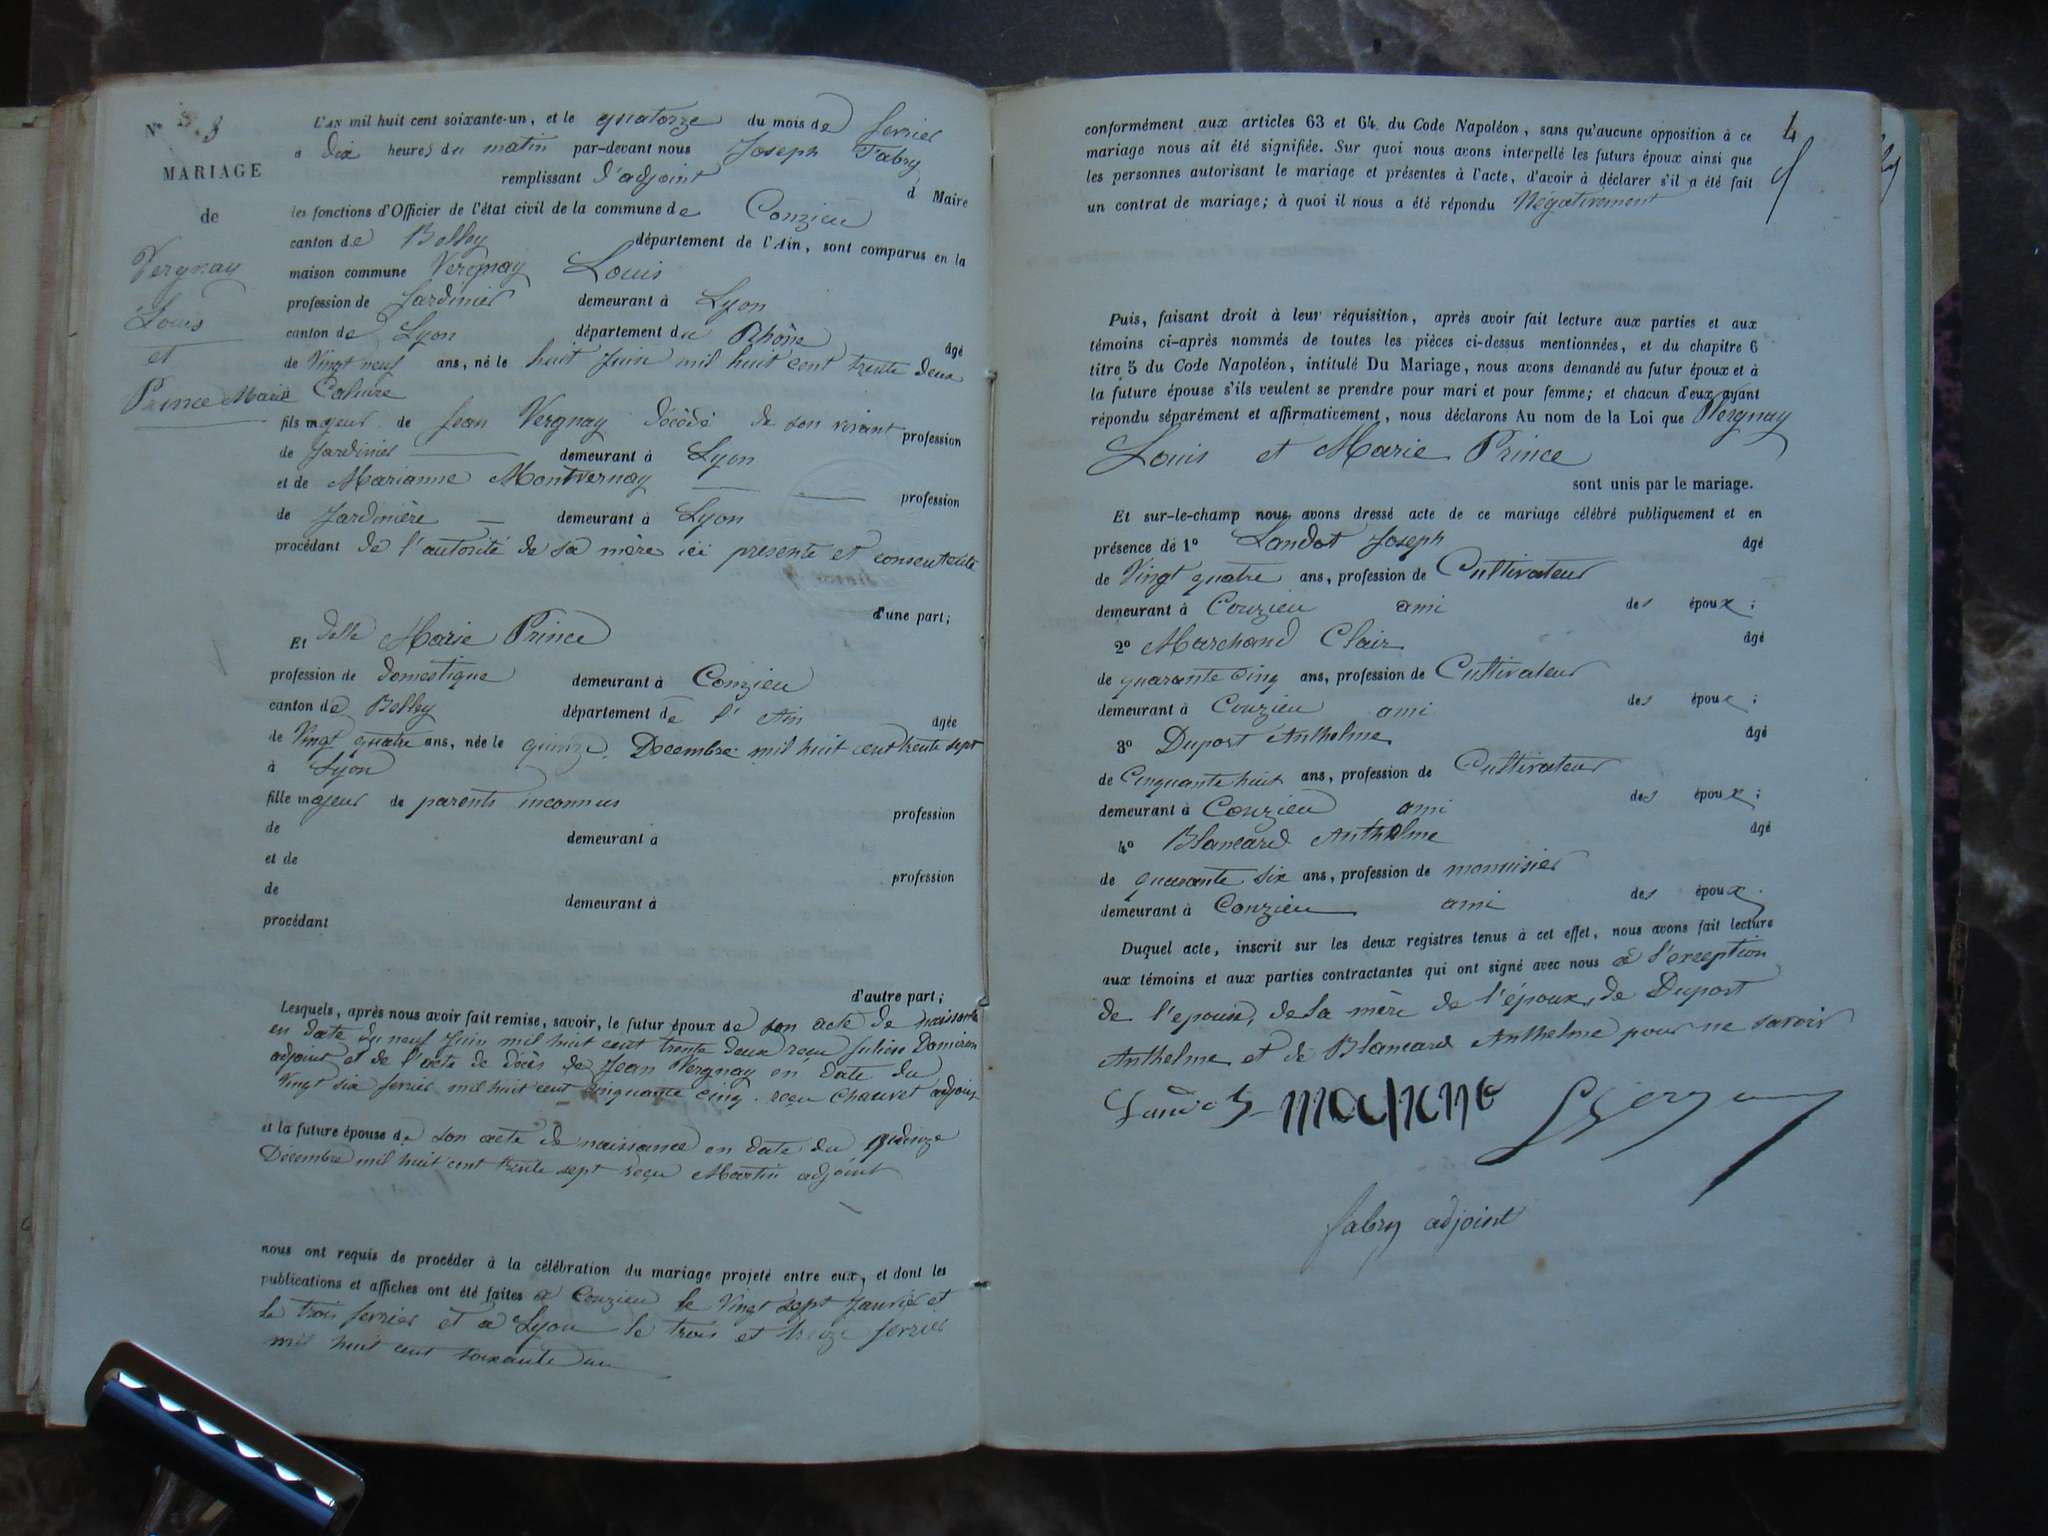 N° 3
MARIAGE
de
Vergnay
Louis
et
Prince Marie
L'AN mil huit cent soixante-un, et le quatorze du mois de fevrier
a dix heures du matin par-devant nous Joseph Fabry
remplissant d'adjoint d Maire
les fonctions d'Officier de l'état civil de la commune de Conzieu
canton de Belley département de l'Ain, sont comparus en la
maison commune Vergnay Louis
profession de Jardinier demeurant à Lyon
canton de Lyon département du Rhône âgé
de Vingt neuf ans, né le huit Juin mil huit cent trente deux
à Caluire
fils majeur de Jean Vergnay décédé de son vivant profession
de Jardinier demeurant à Lyon
et de Marianne Montvernay profession
de Jardinière demeurant à Lyon
procédant de l'autorité de sa mère ici présente et consentente
d'une part;
Et delle Marie Prince
profession de domestique demeurant à Conzieu
canton de Belley département de l'Ain âgée
de Vingt quatre ans, née le quinze Decembre mil huit cent trente sept
à Lyon
fille majeur de parents inconnus profession
de demeurant à
et de profession
de demeurant à
procédant
d'autre part;
Lesquels, après nous avoir fait remise, savoir, le futur époux de son acte de naissance
en date du neuf Juin mil huit cent trente deux reçu Julien Damiron
adjoint et de l'acte de décès de Jean Vergnay en date du
Vingt six fevrier mil huit cent cinquante cinq reçu Chauvet adjoint
et la future épouse de son acte de naissance en date du quinze
Décembre mil huit cent trente sept reçu Martin adjoint
nous ont requis de procéder à la célébration du mariage projeté entre eux, et dont les
publications et affiches ont été faites à Conzieu le Vingt sept Janvier et
le trois fevrier et à Lyon le trois et treize fevrier
mil huit cent soixante un
4
conformément aux articles 63 et 64 du Code Napoléon, sans qu'aucune opposition à ce
mariage nous ait été signifiée. Sur quoi nous avons interpellé les futurs époux ainsi que
les personnes autorisant le mariage et présentes à l'acte, d'avoir à déclarer s'il a été fait
un contrat de mariage; à quoi il nous a été répondu Négativement
Puis, faisant droit à leur réquisition, après avoir fait lecture aux parties et aux
témoins ci-après nommés de toutes les pièces ci-dessus mentionnées, et du chapitre 6
titre 5 du Code Napoléon, intitulé Du Mariage, nous avons demandé au futur époux et à
la future épouse s'ils veulent se prendre pour mari et pour femme; et chacun d'eux ayant
répondu séparément et affirmativement, nous déclarons Au nom de la Loi que Vergnay
Louis et Marie Prince
sont unis par le mariage.
Et sur-le-champ nous avons dressé acte de ce mariage célébré publiquement et en
présence de 1° Landot Joseph âgé
de Vingt quatre ans, profession de Cultivateur
demeurant à Conzieu ami des époux;
2° Marchand Clair âgé
de quarante cinq ans, profession de Cultivateur
demeurant à Conzieu ami des époux;
3° Duport Anthelme âgé
de Cinquante huit ans, profession de Cultivateur
demeurant à Conzieu ami des époux;
4° Blancard Anthelme âgé
de quarante six ans, profession de menuisier
demeurant à Conzieu ami des époux.
Duquel acte, inscrit sur les deux registres tenus à cet effet, nous avons fait lecture
aux témoins et aux parties contractantes qui ont signé avec nous à l'exception
de l'épouse, de la mère de l'époux, de Duport
Anthelme et de Blancard Anthelme pour ne savoir
fabry adjoint